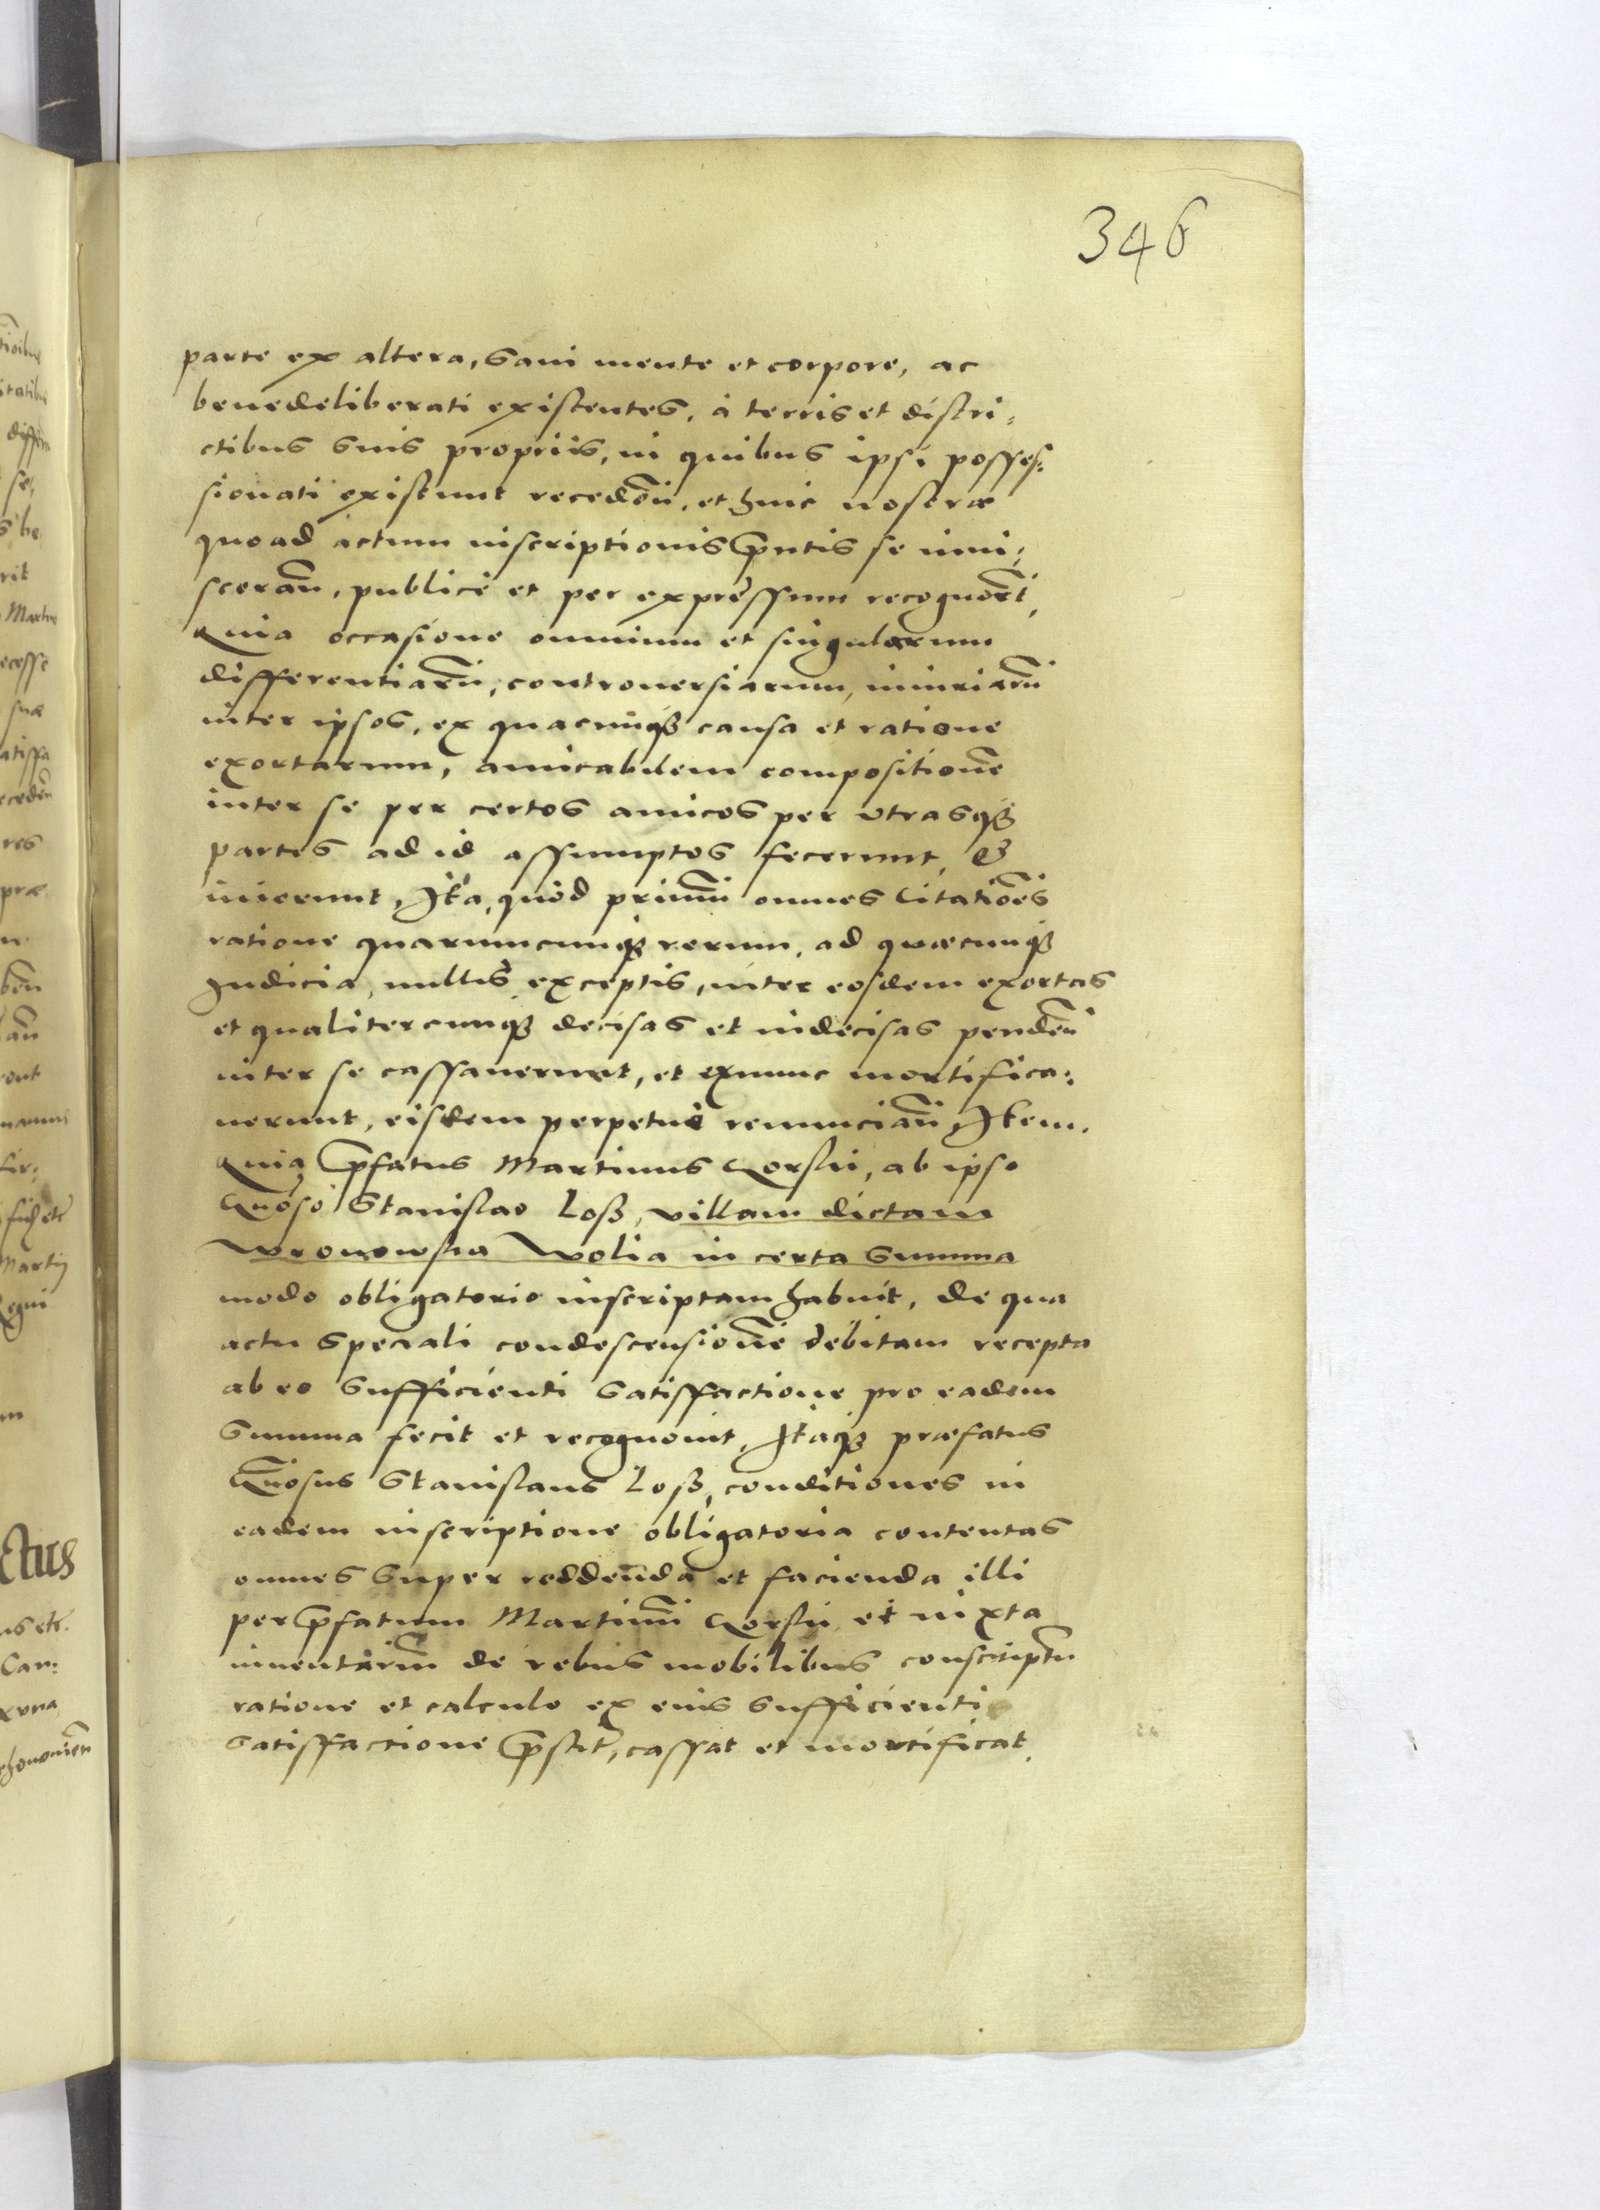 346
parte ex altera, sani mente et corpore, ac
benedeliberati existentes, à terris et distri,
ctibus suis propriis, in quibus ipsi posses:
sionati existunt recedeñ, et huic nostræ
quoad actum inscriptionis p̃ntis se inui:
scerañ, publicè et per expressum recognor̃t,
Quia occasione omnium et singularum
differentiar̃u, controuersiarum, iniuriar̃u
inter ipsos, ex quacunq3 causa et ratione
exortarum, amicabilem compositionẽ
inter se per certos amicos per vtrasq3
partes ad id assumptos fecerunt, &
inierunt, Ita, quòd primũ omnes Citatiões
ratione quarumcunq3 rerum, ad quæcunq3
Iudicia, nullis exceptis, inter eosdem exortas
et qualitercunq3 decisas et indecisas pendeñ
inter se cassauerunt, et exnunc mortifica:
uerunt, eisdem perpetuò renunciañ, Item.
Quia p̃fatus Martinus Gorski, ab ipso
G̃noso Stanislao Loß, villam dictam
Wronowska Wolia in certa summa
modo obligatorio inscriptam habuit, de qua
actu speciali condescensionẽ debitam recepta
ab eo sufficienti satisfactione pro eadem
summa fecit et recognouit, Itaq3 præfatus
G̃nosus Stanislaus Loß, conditiones in
eadem inscriptione obligatoria contentas
omnes super reddenda et facienda illi
per p̃fatum Martinũ Gorski et iuxta
inuentariũ de rebus mobilibus conscriptũ
ratione et calculo ex eius sufficienti
satisfactione p̃stit, cassat et mortificat,